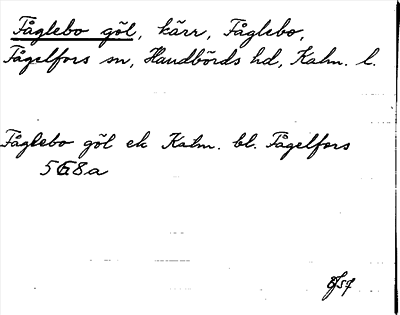 Fåglebo göl, kärr, Fåglebo,
Fågelfors sn, Handbörds hd, Kalm. l.
Fåglebo göl ek Kalm. bl. Fågelfors
5G8a